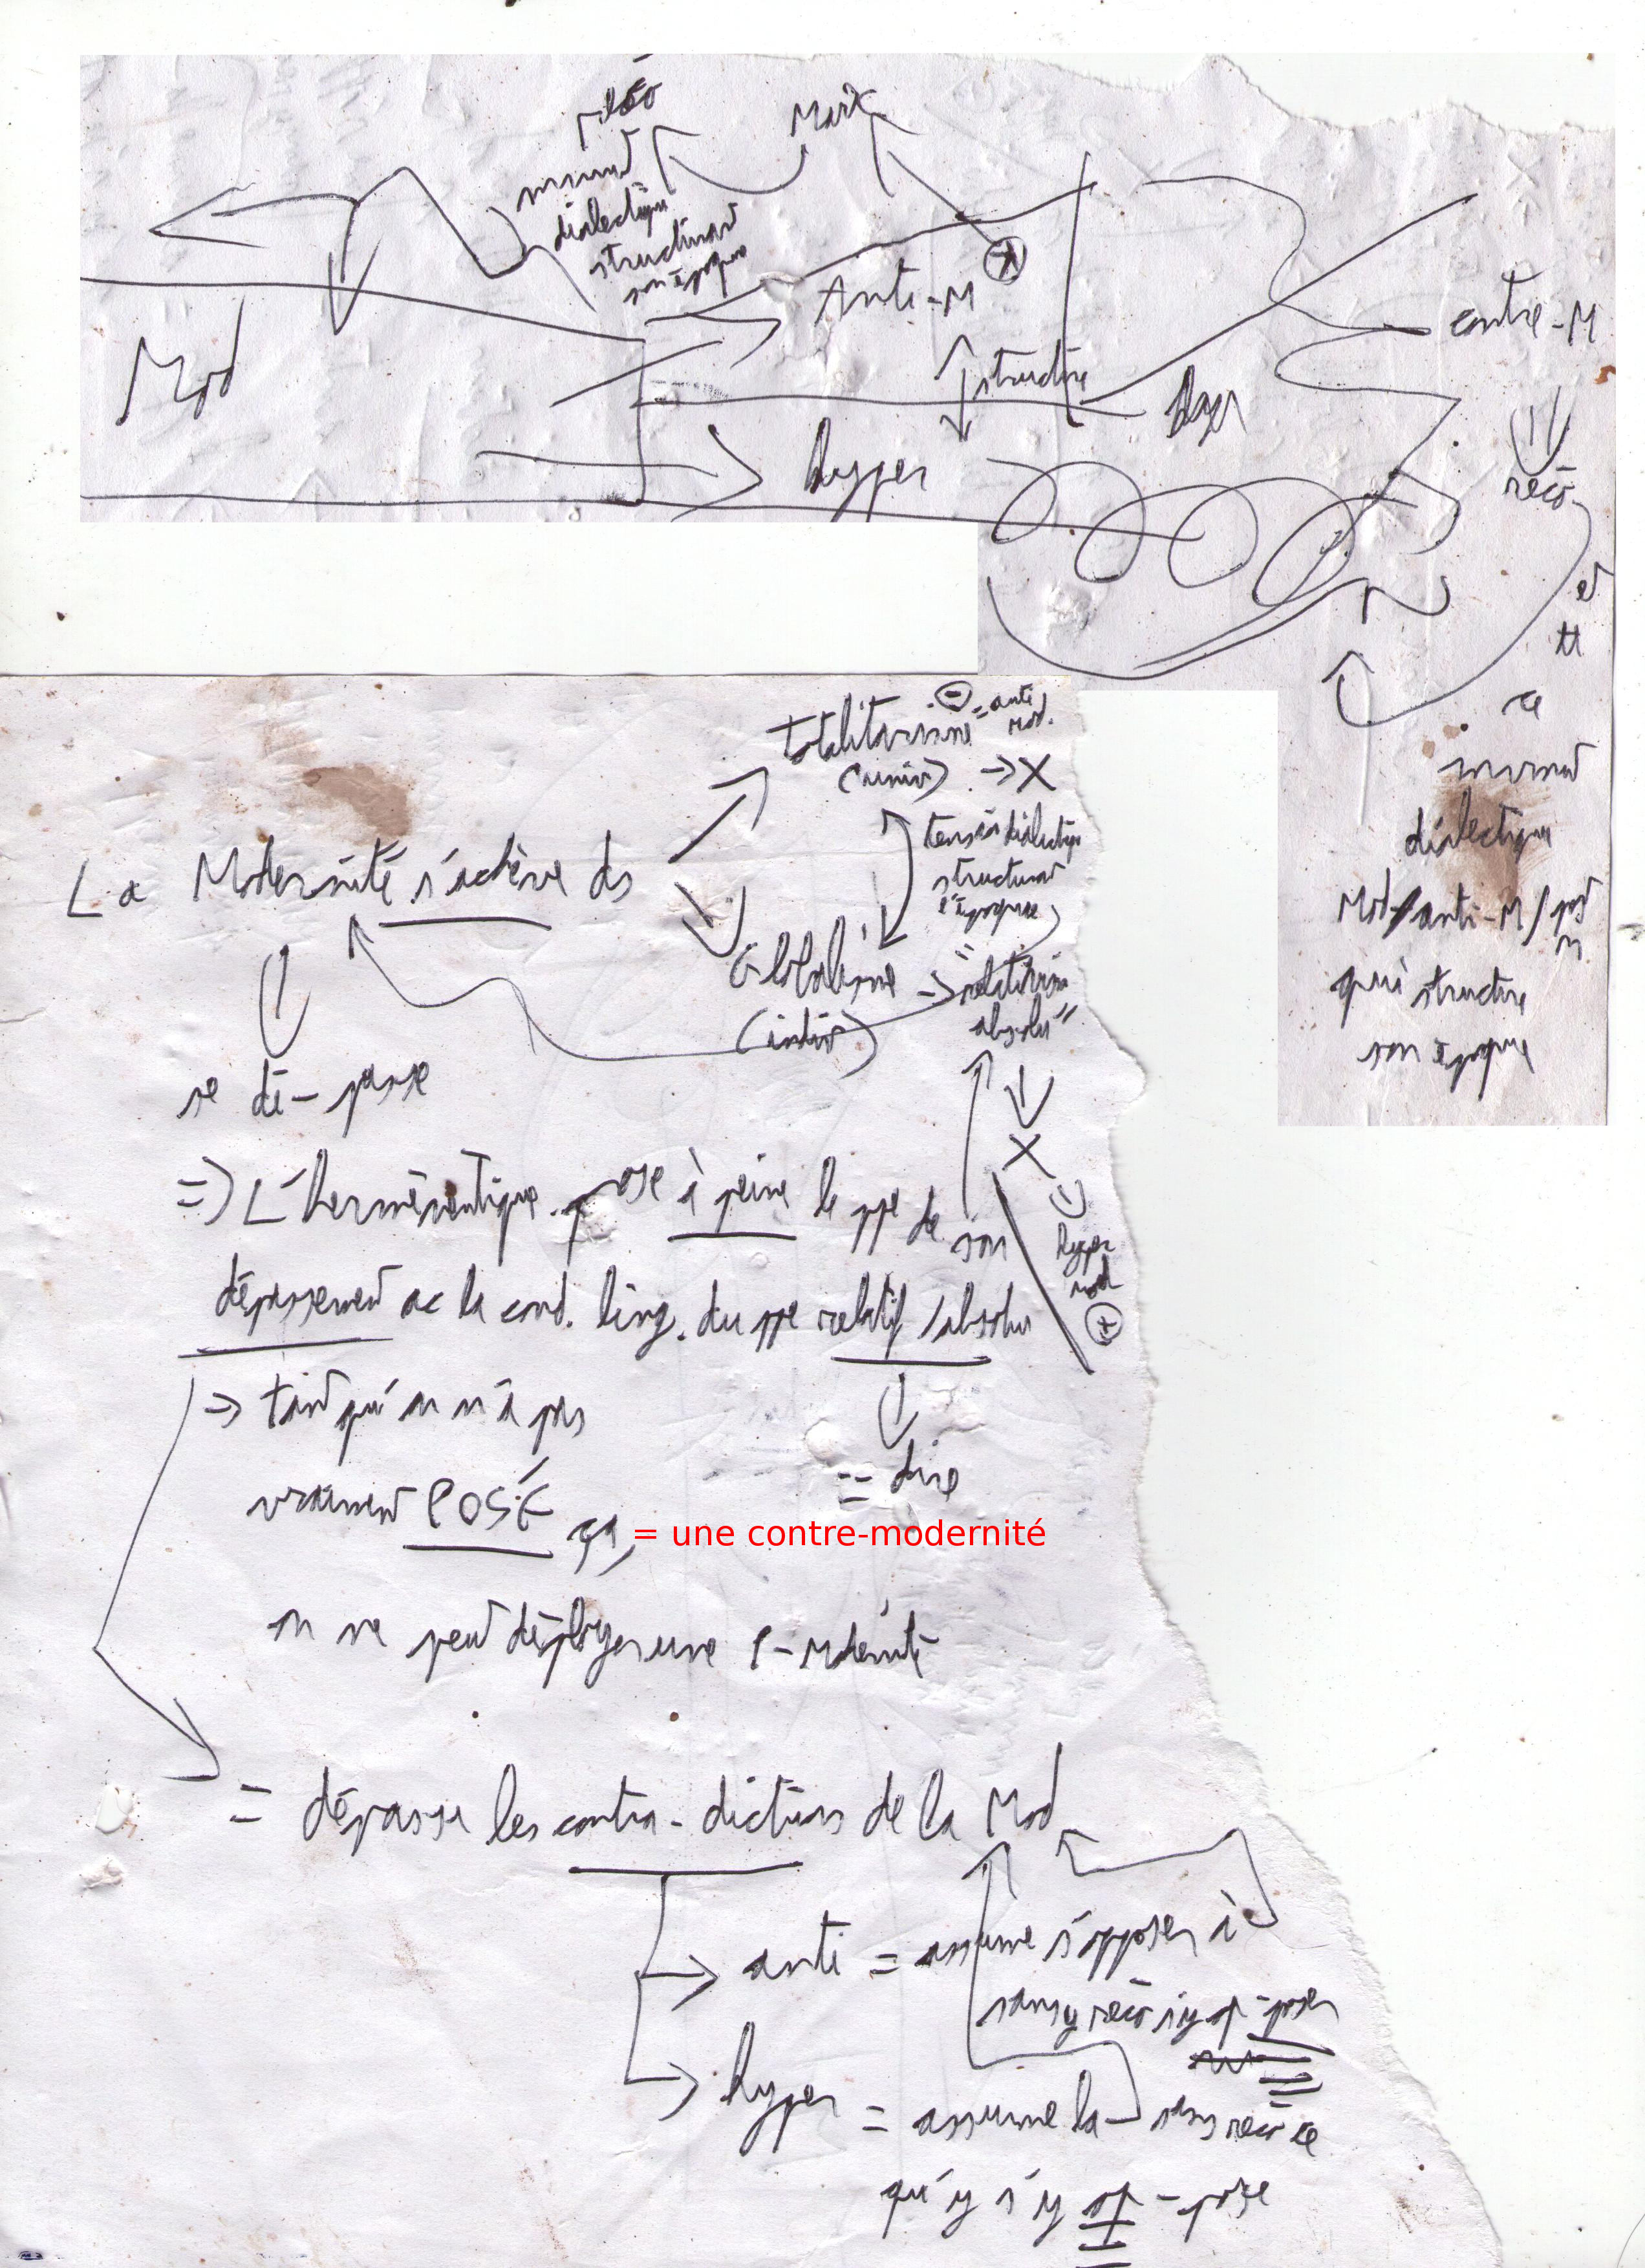 Marx
mvmnd
dialectique
structurant
son époque
Anti-M
contre-M
structure
Mod
hyper
hyper
réco
et
tt
ce
mvmnd
dialectique
Mod/anti-M/
qui structure
son époque
totalitarisme = anti
mod.
(univ) → X
tension dialectiq
structurant
l'époque
La Modernité s'achève ds
Globalisme → "relativism
(indiv) absolu"
se dé-passe
X
=> L'herméneutique pose à peine le ppe de son
hyper
mod
+
dépassement ac la cond. ling. du ppe relatif/absolu
→ tant qu'on n'a pas
= dire
vraiment POSÉ ça,
= une contre-modernité
on ne peut déployer une
= dépasser les contra-dictions de la Mod
→ anti = assume s'opposer à
sans réco s'y op-poser
→ hyper = assume la sans réco ce
qu'y s'y op-pose